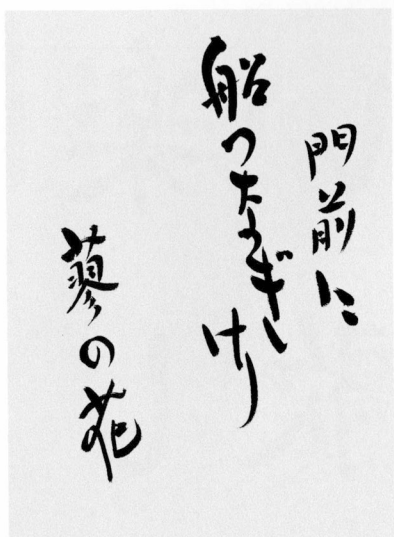 門前に
船つなぎけり
蓼の花